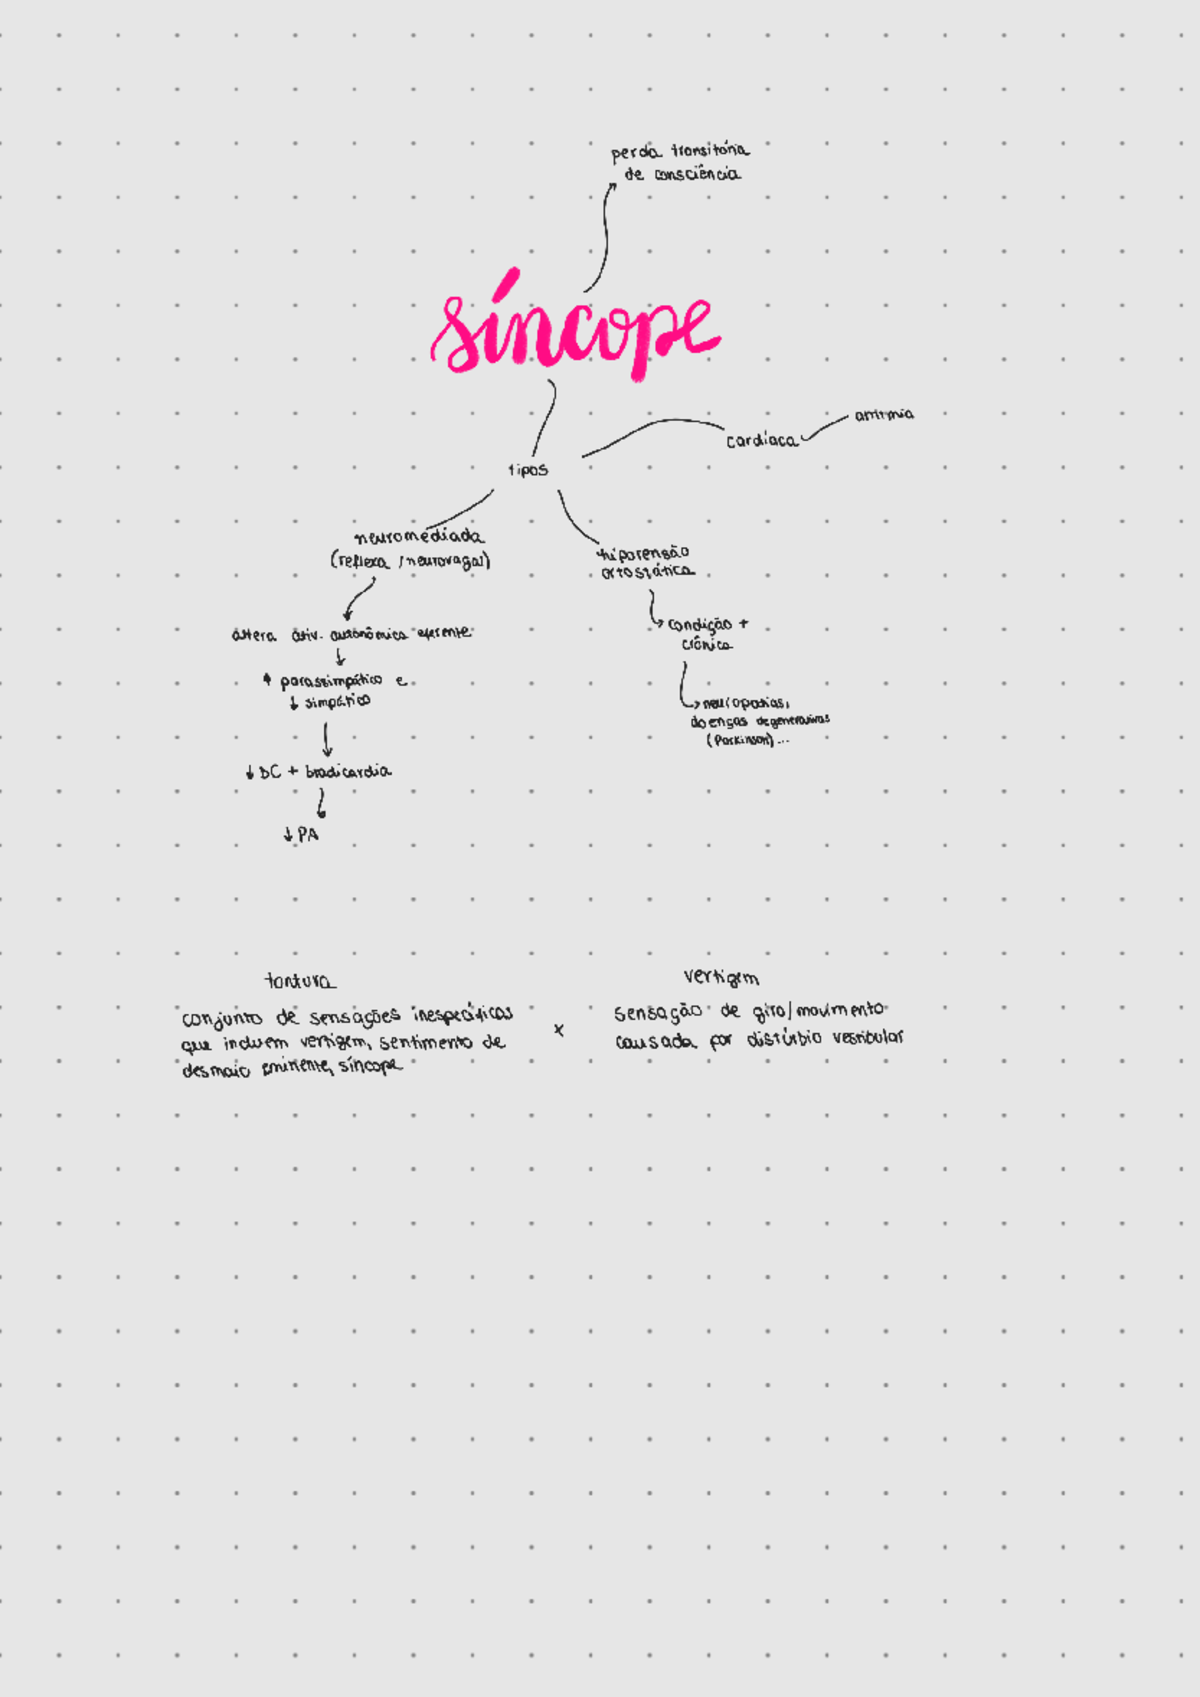 perda transitória
de consciência
síncope
arritmia
cardíaca
tipos
neuromediada
(reflexa / neurovagal)
hipotensão
ortostática
altera ativ. autonômica eferente
condição +
crônica
↑ parassimpático e
↓ simpático
neuropatias,
doenças degenerativas
(Parkinson)...
↓ DC + bradicardia
↓ PA
tontura
vertigem
conjunto de sensações inespecíficas
que incluem vertigem, sentimento de
desmaio eminente, síncope
x
sensação de giro/movimento
causada por distúrbio vestibular